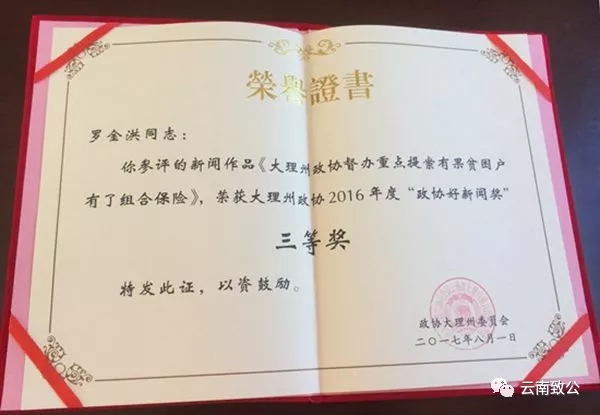 榮譽證書
罗金洪同志：
你参评的新闻作品《大理州政协督办重点提案有果贫困户
有了组合保险》，荣获大理州政协2016年度“政协好新闻奖”
三等奖
特发此证，以资鼓励。
政协大理州委员会
二〇一七年八月一日
云南致公